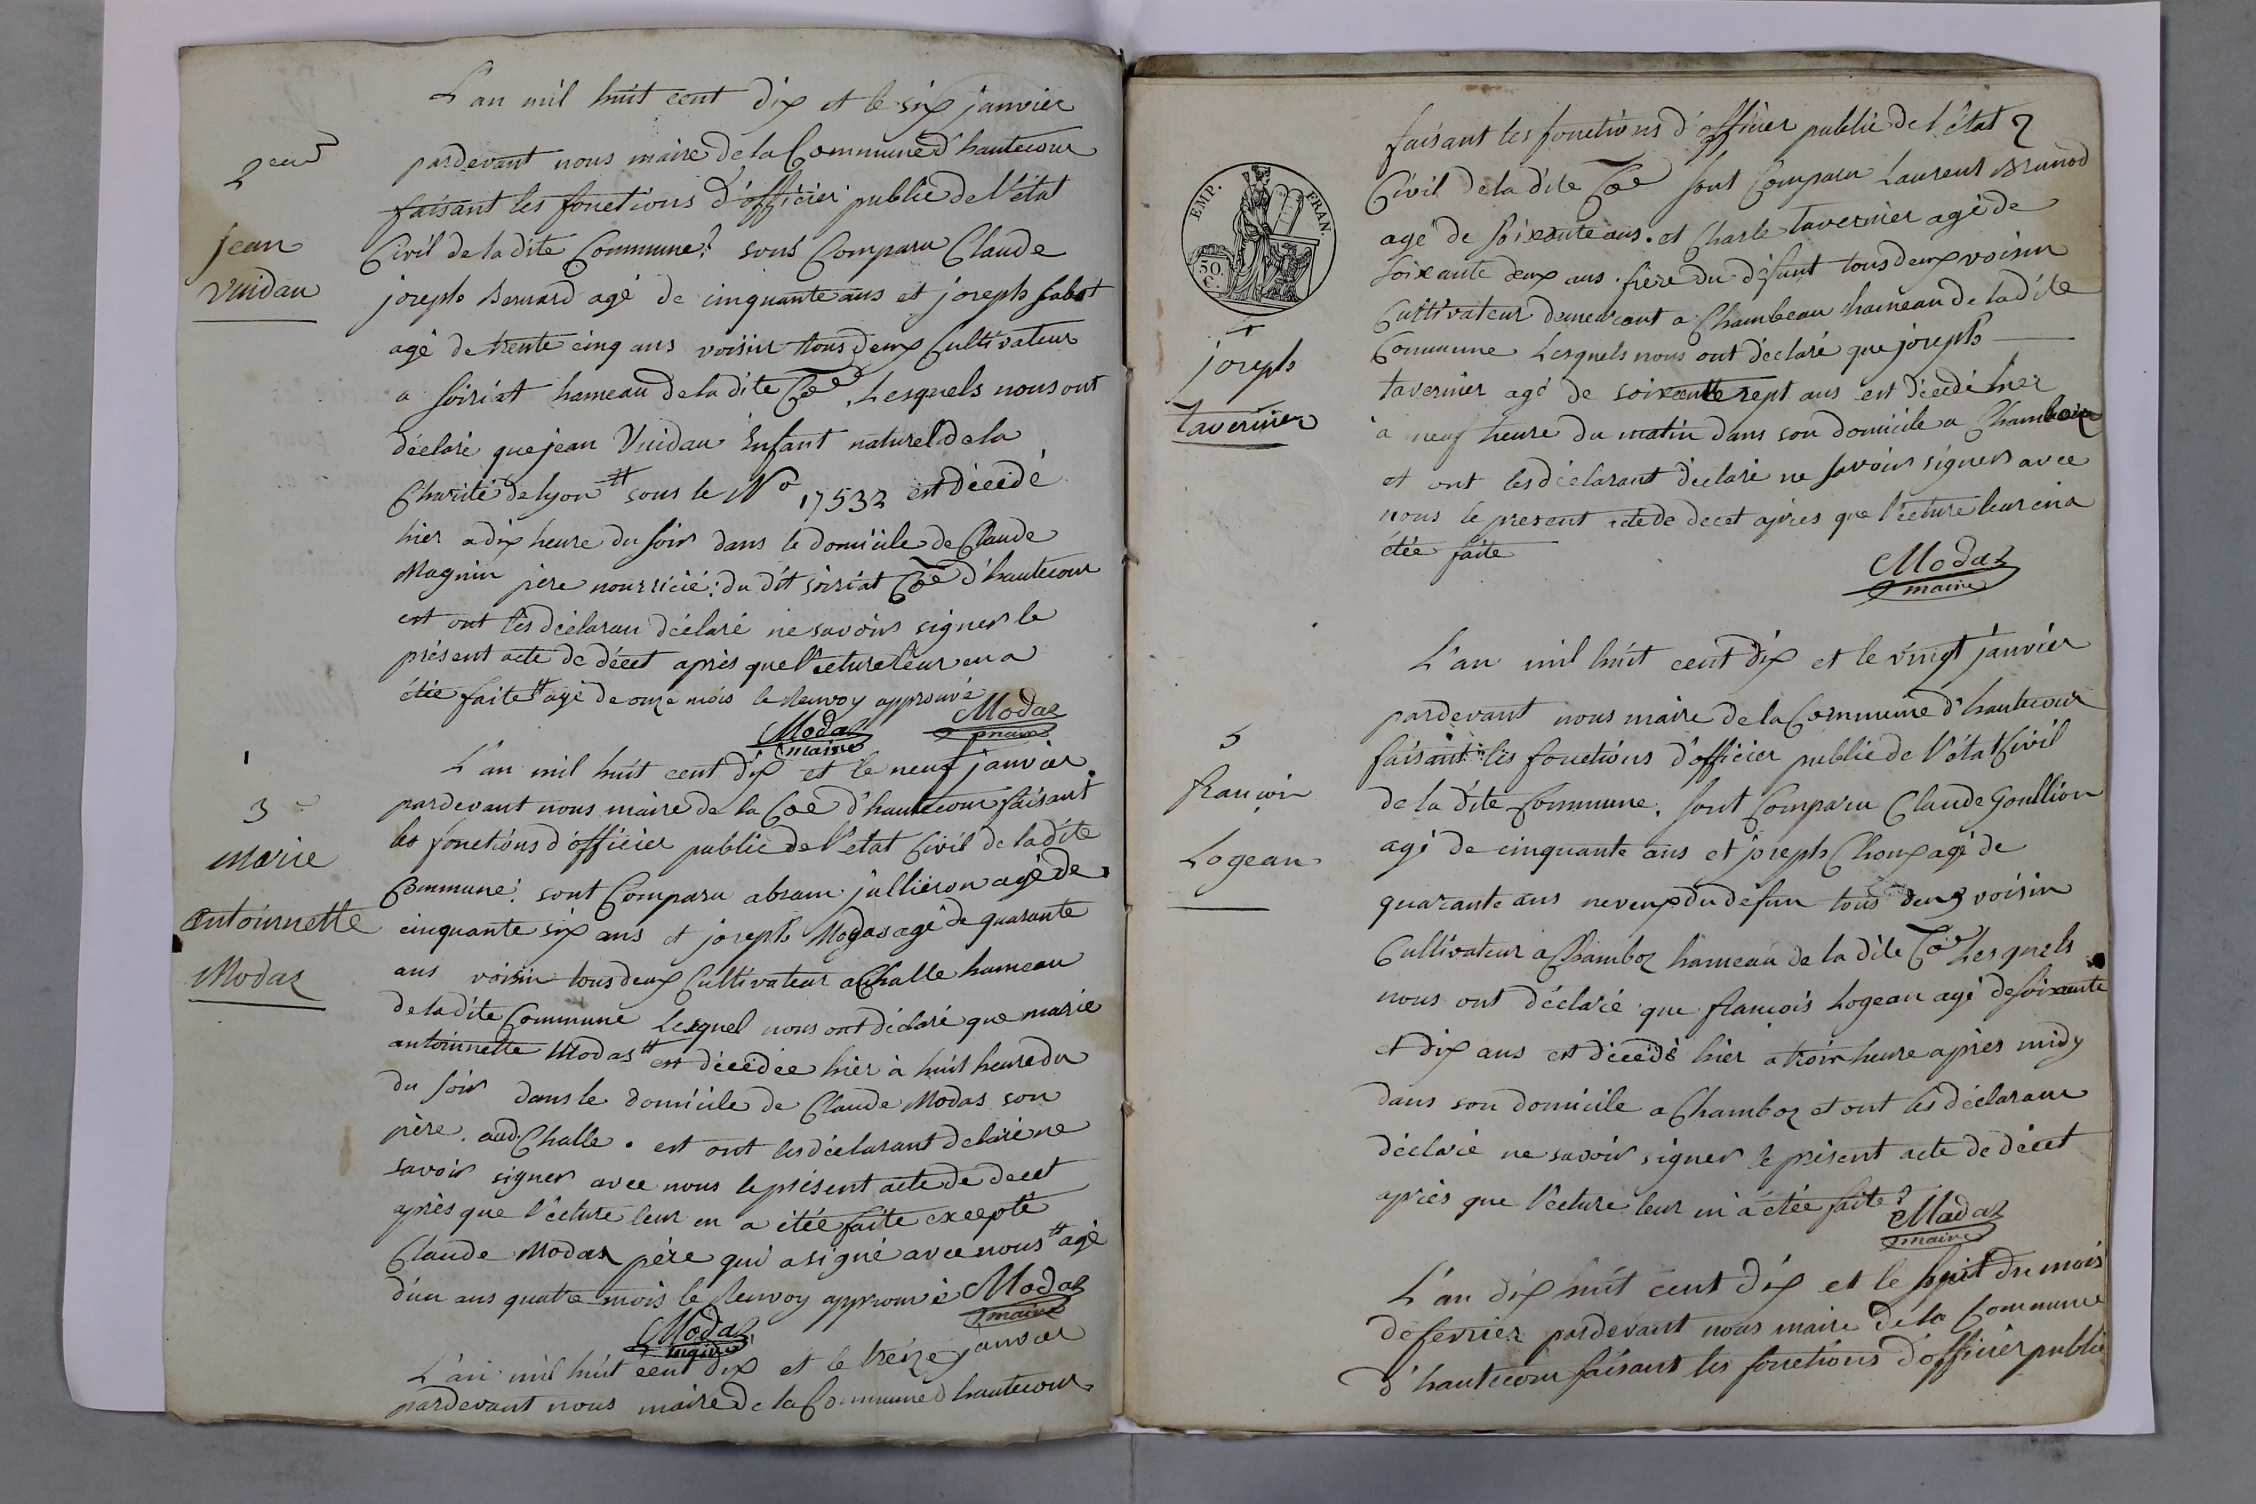 L'an mil huit cent dix et le six janvier
2eme
pardevant nous maire de la Commune d'hautecour
faisant les fonctions d'officier public de l'état
jean
Vuidau
Civil de la dite Commune? sont Comparu Claude
joseph Bernard agé de cinquante ans et joseph sabot
agé de trente cinq ans voisin tous deux Cultivateur
a soiriat hameau de la dite Coe. Lesquels nous ont
déclaré que jean Vuidau Enfant naturel de la
Charité de lyon # sous le No 17532 est décédé
hier a dix heure du soir dans le domicile de Claude
Magnin père nourricié: du dit soiriat Coe d'hautecour
est ont les déclaran déclaré ne savoir signer le
présent acte de décet après que l'ecture leur en a
étée faite # agé de onze mois le Renvoy approuvé
Modaz maire
Modaz maire
3e
marie
antoinnette
Modaz
L'an mil huit cent dix et le neuf janvier
pardevant nous maire de la Coe d'hautecour faisant
les fonctions d'officier public de l'état Civil de la dite
Commune: sont Comparu abram jullieron agé de
cinquante six ans et joseph Modas agé de quarante
ans voisin tous deux Cultivateur a Challe hameau
de la dite Commune Lesquel nous ont déclaré que marie
antoinnette Modas # est décédée hier à huit heure du
du soir dans le domicile de Claude Modas son
père. aud. Challe. est ont les déclarant delaré ne
savoir signer avec nous le présent acte de decet
après que l'écture leur en a étée faite excepté
Claude Modaz père qui a signé avec nous # agé
d'un ans quatre mois le Renvoy approuvé Modaz
maire
Modaz
maire
L'an mil huit cent dix et le treize janvier
pardevant nous maire de la Commune d'hautecour
EMP. FRAN.
50. C.
4
joseph
tavernier
faisant les fonctions d'officier public de l'état
Civil de la dite Coe sont Comparu Laurent Brunod
agé de soixante ans. et Charle tavernier agé de
soixante deux ans. frère du défunt tous deux voisin
Cultivateur demeurant a Chambeau hameau de la dite
Commune Lesquels nous ont déclaré que joseph
tavernier agé de soixante sept ans est décédé hier
à neuf heure du matin dans son domicile a
et ont les déclarant déclaré ne savoir signer avec
nous le present acte de decet après que l'écture leur en a
étée faite
Modaz
maire
5
françois
Logean
L'an mil huit cent dix et le vingt janvier
pardevant nous maire de la Commune d'hautecour
faisant les fonctions d'officier public de l'état Civil
de la dite Commune. sont Comparu Claude Goullion
agé de cinquante ans et joseph Choux agé de
quarante ans neveux du défun tous deux voisin
Cultivateur a Chamboz hameau de la dite Coe Lesquels
nous ont déclaré que françois Logean agé de soixante
et dix ans est décédé hier a trois heure après midy
dans son domicile a Chamboz et ont les déclaran
déclaré ne savoir signer le présent acte de décet
après que l'ecture leur en à étée faite?
Modaz
maire
L'an dix huit cent dix et le huit du mois
de fevrier pardevant nous maire de la Commune
d'hautecour faisant les fonctions d'officier public